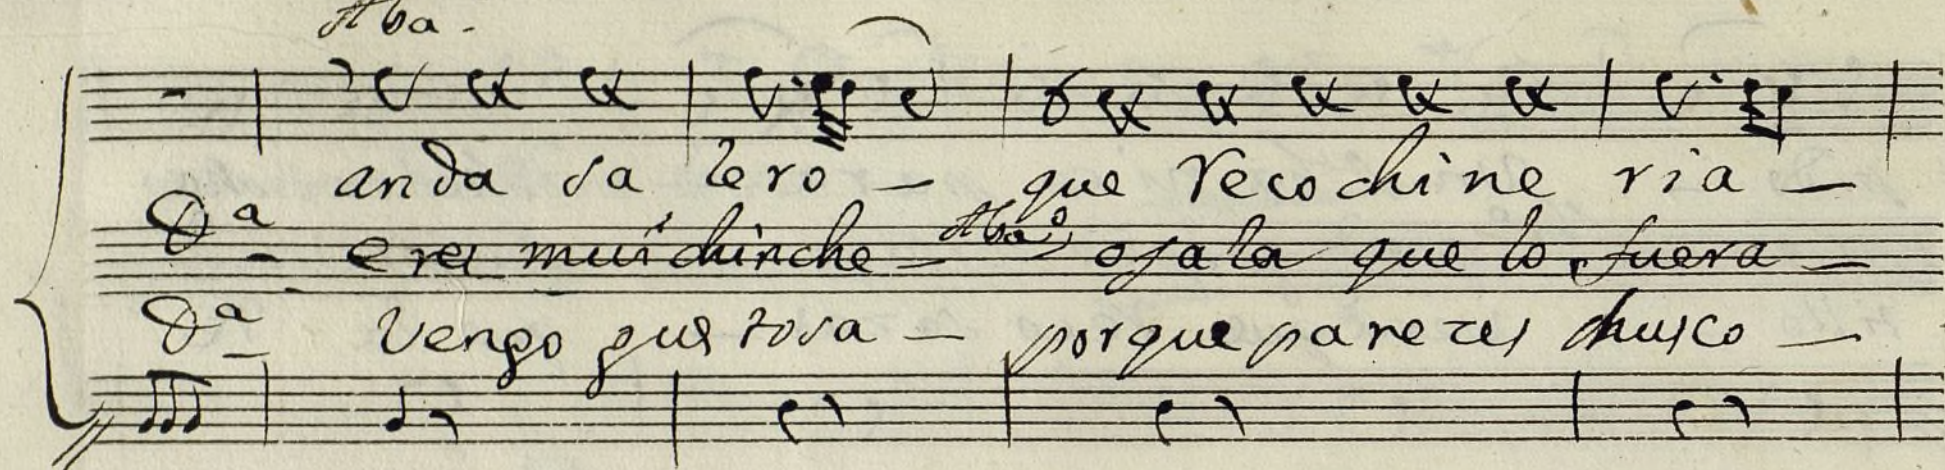 Aba.
anda sa lero — que recochine ria —
Dª eres mui chinche — Aba° ojala que lo fuera —
Dª Vengo gustosa — porque pareces chusco —